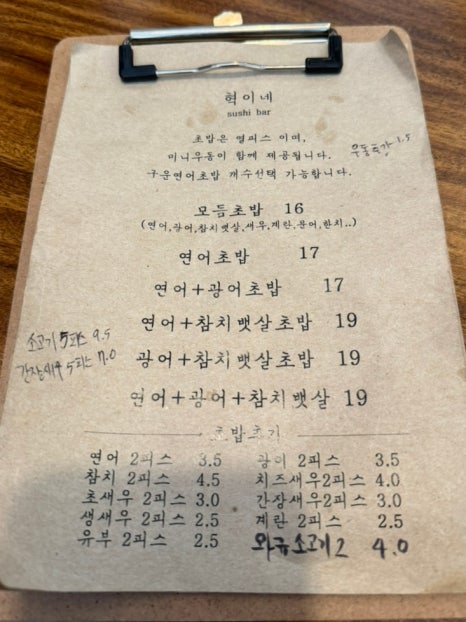 혁이네
sushi bar
초밥은 열피스 이며,
미니우동이 함께 제공됩니다.
구운연어초밥 개수선택 가능합니다.
우동추가 1.5
모듬초밥 16
(연어,광어,참치뱃살,새우,계란,문어,한치..)
연어초밥 17
연어+광어초밥 17
연어+참치뱃살초밥 19
광어+참치뱃살초밥 19
연어+광어+참치뱃살 19
소고기 5피스 9.5
간장새우 5피스 7.0
초밥추가
연어 2피스 3.5
참치 2피스 4.5
초새우 2피스 3.0
생새우 2피스 2.5
유부 2피스 2.5
광어 2피스 3.5
치즈새우2피스 4.0
간장새우2피스 3.0
계란 2피스 2.5
와규소고기2 4.0